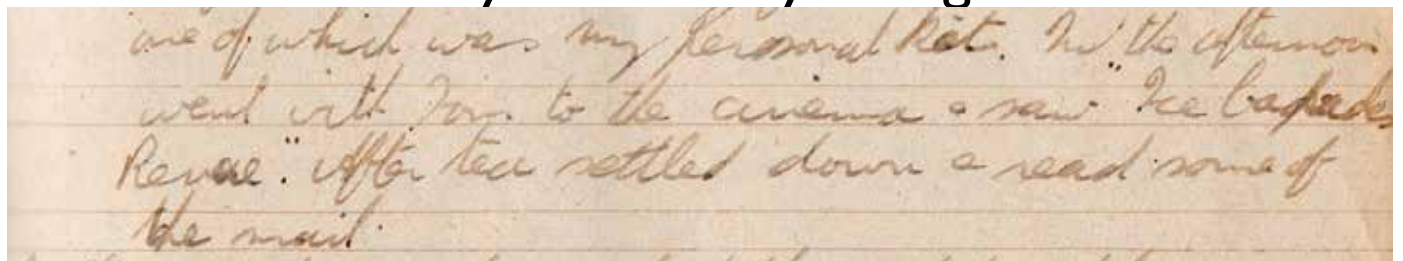 one of which was my personal kit. In the afternoon
went with Tom to the cinema & saw "Ice Capades
Revue". After tea settled down & read some of
the mail.